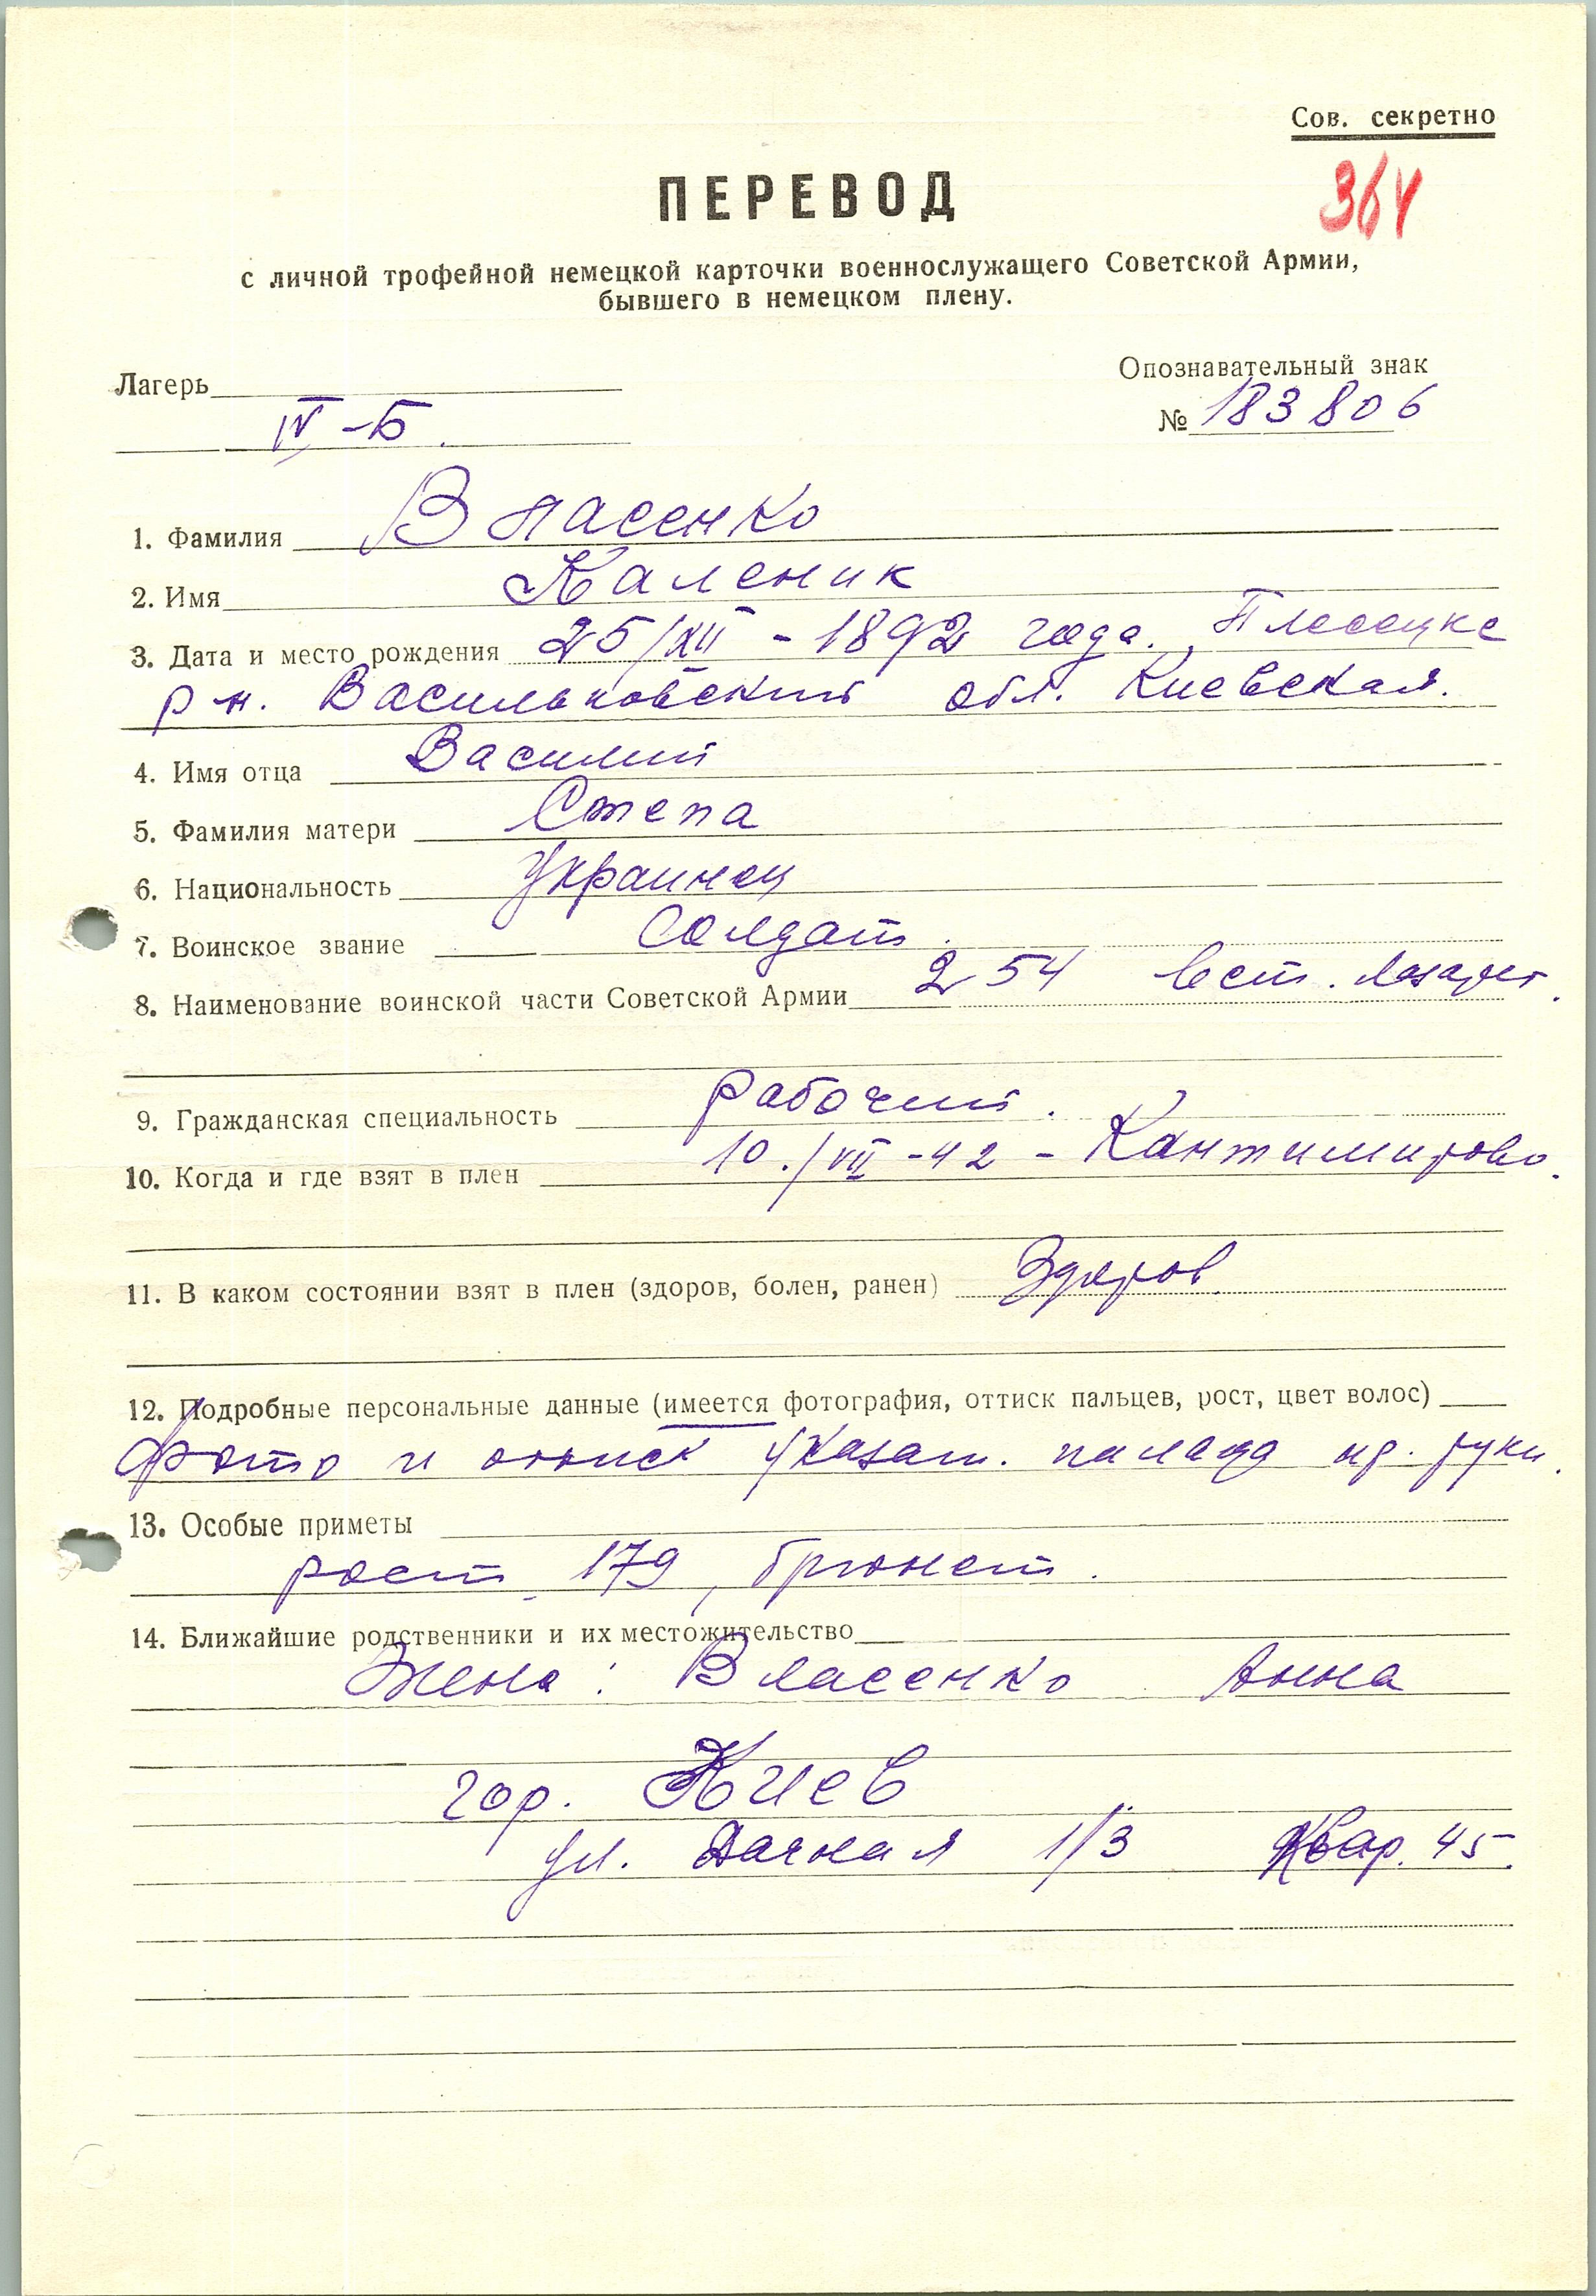 Сов. секретно
364
ПЕРЕВОД
с личной трофейной немецкой карточки военнослужащего Советской Армии,
бывшего в немецком плену.
Лагерь
IV-Б.
Опознавательный знак
№ 183806
1. Фамилия Власенко
2. Имя Каленик
3. Дата и место рождения 25/XII - 1892 года. Плесецке
р-н. Васильковский обл. Киевская.
4. Имя отца Василий
5. Фамилия матери Степа
6. Национальность Украинец
7. Воинское звание Солдат.
8. Наименование воинской части Советской Армии 254 вест. лазарет.
9. Гражданская специальность рабочий.
10. Когда и где взят в плен 10./VII-42 - Кантимирово.
11. В каком состоянии взят в плен (здоров, болен, ранен) Здоров
12. Подробные персональные данные (имеется фотография, оттиск пальцев, рост, цвет волос)
Фото и оттиск указат. пальца пр. руки.
13. Особые приметы
рост 179, брюнет.
14. Ближайшие родственники и их местожительство
Жена: Власенко Анна
гор. Киев
ул. Дачная 1/3 Квар. 45.